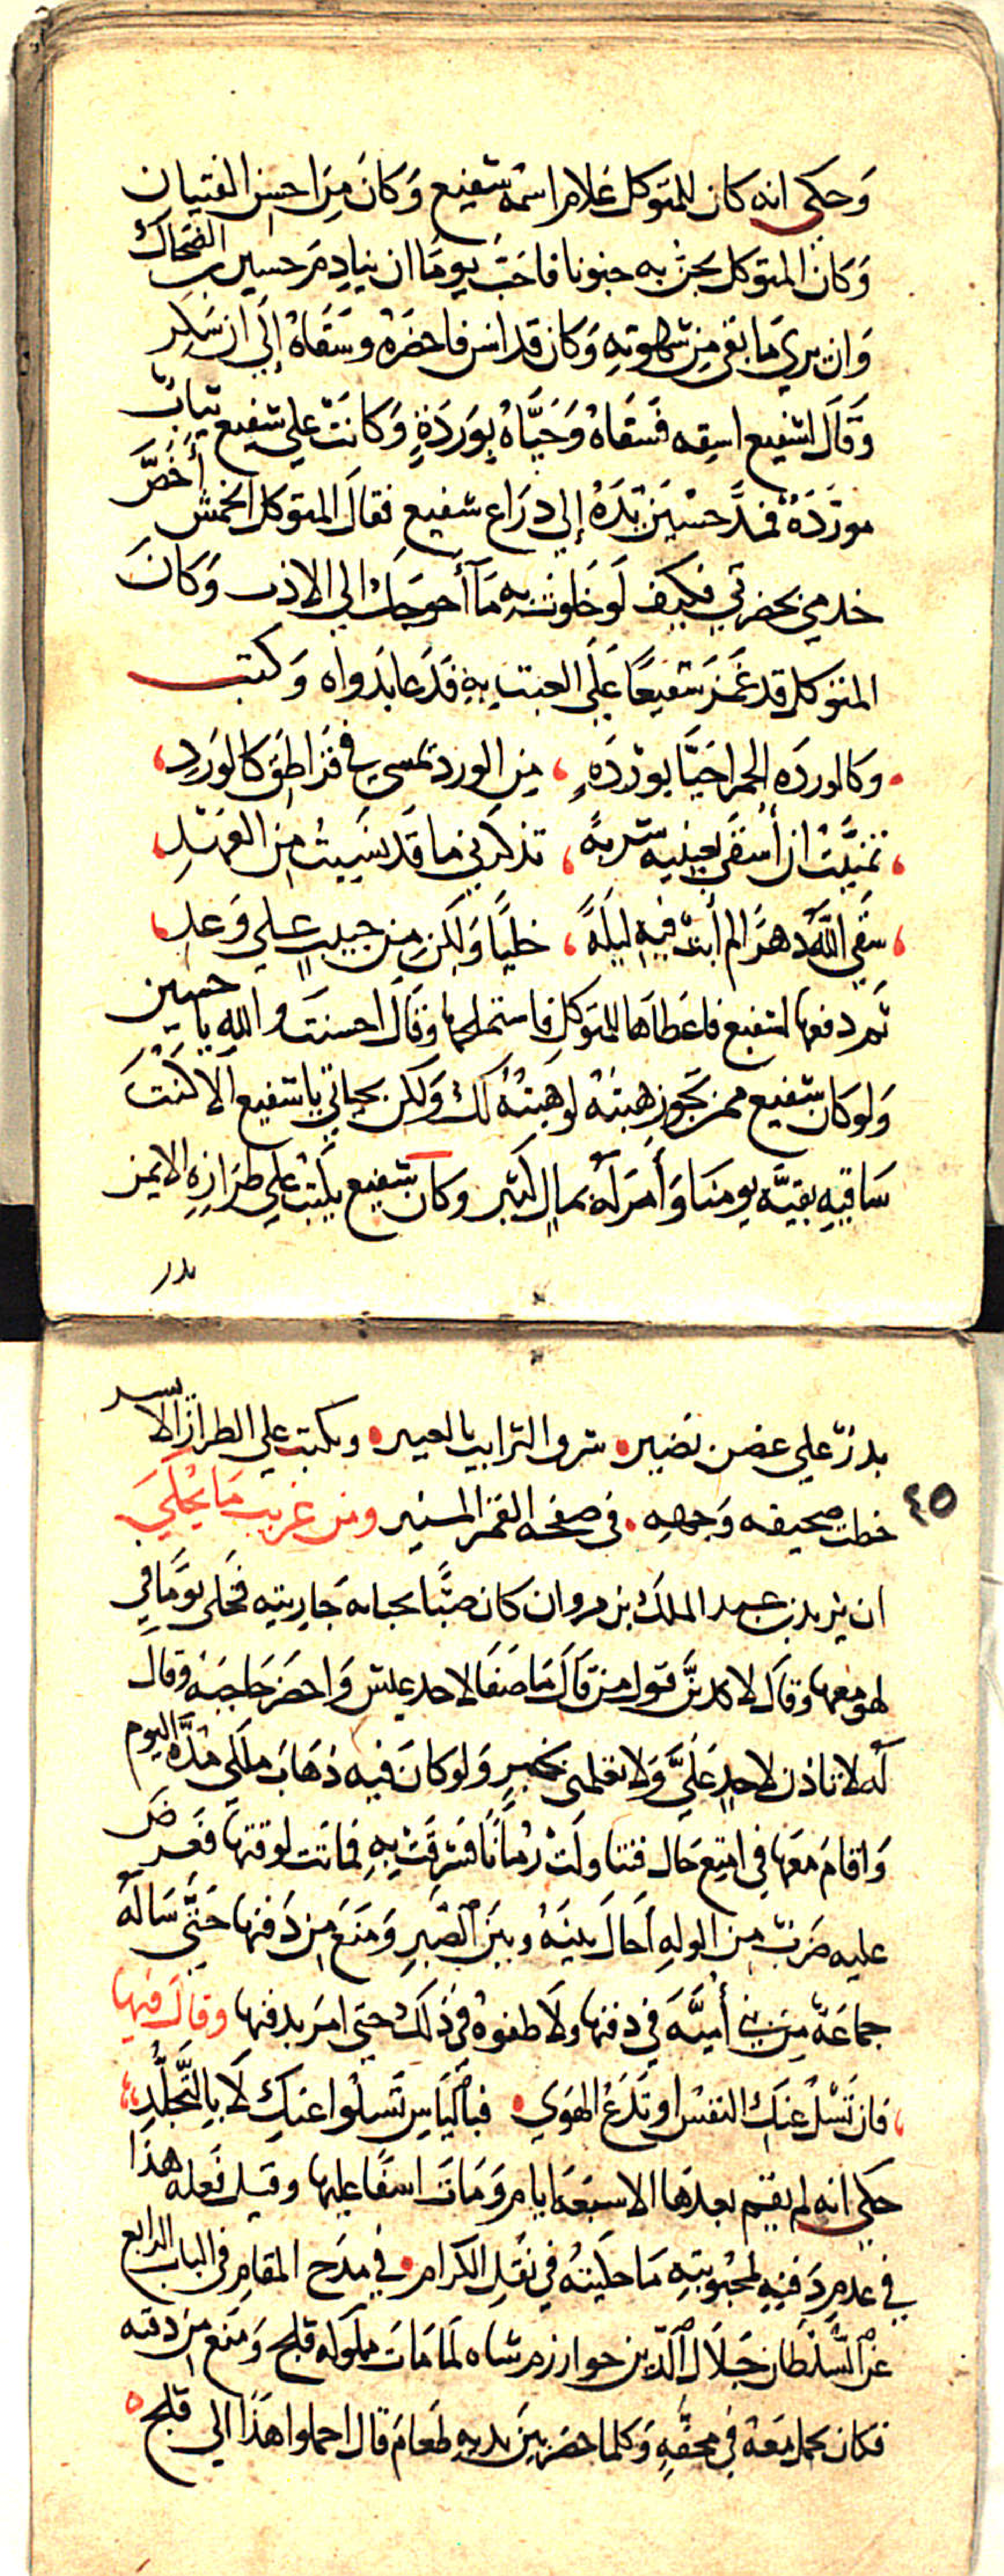 وَحكى انه كان للمتوكل غلام اسمه شفيع وَكانَ مِن احسن الفتيان
وَكانَ المتوكل يجن به جنونا فاحَبّ يومًا ان ينادمَ حسين بن الضحاك
وَان يرى مَا بقى مِن شهوتهِ وَكان قد اسن فاحضَرهُ وسَقَاهُ إلَى ان سَكِر
وَقَالَ لشفيع اسقِه فَسَقاهُ وَحَيَّاهُ بِوَردَةٍ وَكانَتْ على شفيع ثيابٌ
مورَّدَةٌ فمدَّ حسَين يَدَهُ إلى ذرَاع شفيع فقالَ المتوكل اتخمش أخَصَّ
خدمى بحضرتي فكيف لَو خَلوتَ بهِ مَا أحوجَك الى الادب وَكانَ
المتوكل قد غمَزَ شفيعًا عَلَى العبث بهِ فَدَعا بدَواه وَكتب
وكالوردَه الحمرا حَيَّا بوَردَهٍ ، مِن الورد يمسى فى قَرَاطِق كالوَردِ،
، تمنَّيتُ ان أُسْقَى بعينيه شربةً ، تذكرنى ما قَد نَسيتُ مِن العَهدِ،
، سَقى اللّه دهرًا لم أبت فيهِ ليلَةً ، خليًّا وَلكن مِن حبيب على وَعد،
ثم دفعها لشفيع فاعَطاهَا للمتوكل فاستملحها وقَالَ احسنتَ واللهِ يا حسين
وَلو كان شفيع ممن تجوز هبتهُ لوهَبتُهُ لكَ وَلكن بحياتي يا شفيع الا كنتَ
سَاقيه بقيَّه يومنَا وَأمَرَ لَهُ بمالٍ كثير وكان شفيع يكتب على طرازه الايمن
بدر
بدرٌ على غصن نضير ٥ شرق الترايب بالعبير ٥ ويكتب على الطراز الايسر
٤٥
خطت صحيفه وَجههِ ٥ فى صفحه القمر المنير ومن غريب مَا يُحكى
ان يزيد بن عبد الملك بن مروان كان صَبًّا بحبابه جَاريته فخلى يومًا في
لهو معها وقَالَ لاكذبنَّ قول من قَالَ مَا صَفَا لاحد عيش وَاحضَر حَاجبَهُ وقال
لَه لا تاذن لاحدٍ عَلىَّ وَلا تعلمنى بخبرٍ وَلو كانَ فيه ذهَاب ملكى هَذَا اليوم
وَاقامَ مَعَها في امتع حَال فتناولَتْ رُمّانًا فشرقَتْ بهِ فماتت لوقتها فعَرض
عليه ضَربٌ مِن الوله أحَالَ بينَهُ وبَيَن الصَّبرِ وَمَنَعَ مِن دَفنها حَتّى سَالَهُ
جماعَة مِن بنى أميَّهَ في دَفنها ولَاطفوهُ فى ذلكَ حتى امَر بدفنها وقَالَ فيها
، فان تَسْلُ عنكِ النفسُ او تَدَعْ الهَوى ٥ فبالياسِ تَسْلوا عنكِ لَا بِالتَّجلُّدِ،
حكى انه لم يقم بعدَها الا سبعَه ايام وَمَاتَ اسفًا عليها وقيل فَعله هذا
في عدم دَفنهِ لمحبُوبتهِ مَا حكيتُه في نَقلِ الكرام ٥ في مَدح المقام فى الباب الرابع
عن السُّلْطان جَلَال الدّين خوارزم شاه لَمّا مَات مملوكه قلج وَمنع مِن دفنه
فكان يحمل مَعَهُ في محفّهِ وَكلما حضَر بين يديهِ طعَام قال احملوا هَذا الى قلج ٥